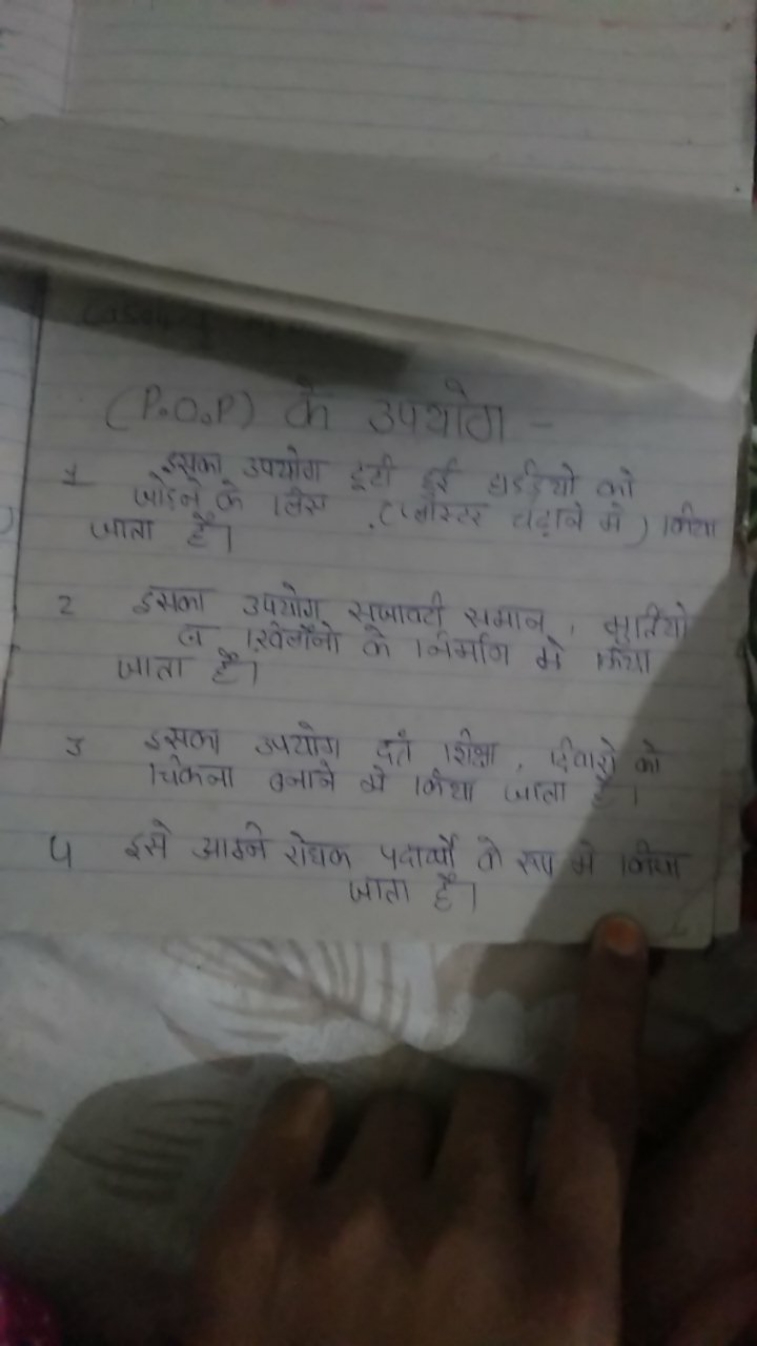 (P.O.P) के उपयोग -
1 इसका उपयोग टूटी हुई हडड्यो को
जोडने के लिए (प्लास्टर चढ़ाने मे) किया
जाता है।
2 इसका उपयोग सजावटी समान, मूर्तियो
व खिलौनो के निर्माण मे किया
जाता है।
3 इसका उपयोग दतं शिक्षा, दिवारो को
चिकना बनाने मे किया जाता है।
4 इसे आग्ने रोधक पदार्थो के रूप मे किया
जाता है।